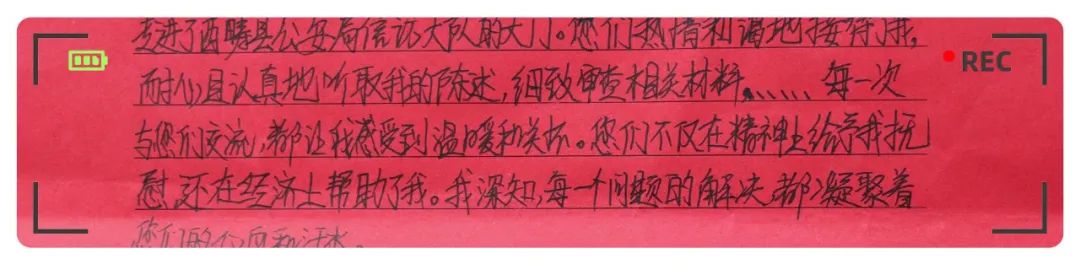 走进了西畴县公安局信访大队的大门。您们热情和谐地接待了我,
REC
而耐心且认真地听取我的陈述,细致审查相关材料......每一次
与您们交流,都让我感受到温暖和关怀。您们不仅在精神上给予我抚
慰,还在经济上帮助了我。我深知,每一个问题的解决,都凝聚着
您们的心血和汗水。